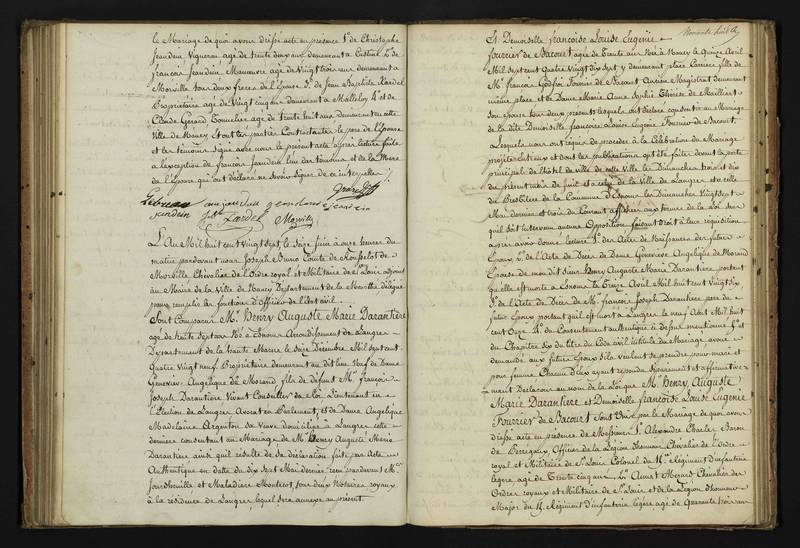 le Mariage de quoi avons dressé acte en presence 1° de Christophe
Jeandin Vigneron agé de trente deux ans demeurant a Custines 2° de
françois Jeandin Manœuvre agé de Vingt trois ans demeurant a
Morville tous deux freres de l'Epouse 3° de Jean Baptiste Xardel
Proprietaire agé de Vingt cinq ans demeurant a Malleloy 4° et de
Claude Gerard Tonnelier agé de trente huit ans demeurant en cette
Ville de Nancy Et ont les parties Contractantes le pere de l'Epouse
et les temoins signé avec nous le present acte après lecture faite
a l'exception de françois Jeandin l'un des temoins et de la Mere
de l'Epouse qui ont déclaré ne savoir signer de ce interpellés
jeandin Xardel Morville
L'An Mil huit cent Vingt sept le Seize Juin a onze heures du
matin pardevant nous Joseph Bruno Comte de Rousselot de
Morville Chevalier de l'Ordre royal et Militaire de St Louis adjoint
au Maire de la Ville de Nancy Département de la Meurthe délégué
pour remplir les fonctions d'Officier de l'état civil.
Sont Comparus Mr Henry Auguste Marie Darantiere
agé de trente sept ans Né à Esnoms Arrondissement de Langres
Département de la haute Marne le Seize Décembre Mil sept cent
Quatre Vingt neuf Propriétaire demeurant au dit lieu Veuf de Dame
Geneviève Angelique de Morand fils de défunt Mr françois
Joseph Darantiere Vivant Conseiller du Roi Lieutenant en
l'Election de Langres Avocat en Parlement, et de Dame Angelique
Madelaine Argenton sa Veuve domiciliée à Langres cette
derniere consentant au Mariage de Mr Henry Auguste Marie
Darantiere ainsi qu'il résulte de sa déclaration faite par Acte
Authentique en date du dix Sept Mai dernier reçu pardevant Me
et son Confrere Notaires royaux
à la résidence de Langres, lequel sera annexé au présent.
Et Demoiselle françoise Louise Eugénie
fourrier de Bacourt agée de Trente ans Née à Nancy le Quinze Avril
Mil sept cent Quatre Vingt dix sept, y demeurant place Carriere fille de
Mr françois Godfroi Fourrier de Bacourt Ancien Magistrat demeurant
même place et de Dame Marie Anne Sophie Thérèse de Maillier
son épouse tous deux présents lesquels ont déclaré consentir au Mariage
de la dite Demoiselle françoise Louise Eugénie Fourrier de Bacourt.
Lesquels nous ont requis de procéder à la Célébration du Mariage
projetté entr'eux et dont les publications ont été faites devant la porte
principale de l'hôtel de ville de cette Ville les Dimanches trois et dix
du présent mois de Juin et a celles de la Ville de Langres et a celle
de la Commune d'Esnoms les Dimanches Vingt sept
Mai dernier et trois du Courant affichées aux termes de la Loi sans
qu'il soit intervenu aucune Opposition faisant droit à leur réquisition
après avoir donné lecture 1° des Actes de Naissances des futurs
Epoux 2° de l'Acte de Décès de Dame Geneviève Angelique de Morand
Epouse de mon dit Sieur Henry Auguste Marie Darantiere portant
qu'elle est morte à Esnoms le Treize Avril Mil huit cent Vingt six
3° de l'Acte de Décès de Mr françois Joseph Darantiere pere du
futur Epoux portant qu'il est mort à Langres le neuf Août Mil huit
cent Onze 4° du Consentement authentique ci dessus mentionné 5° et
du Chapitre Six du titre du Code civil intitulé du Mariage, avons
demandé aux futurs Epoux s'ils veulent se prendre pour mari et
pour femme Chacun d'Eux ayant répondu séparément et affirmative
-ment Déclarons au nom de la Loi que Mr Henry Auguste
Marie Darantiere et Demoiselle françoise Louise Eugénie
Fourrier de Bacourt Sont Unis par le Mariage de quoi avons
dressé acte en présence de Messieurs 1° Alexandre Charles Baron
de Perregaux, Officier de la Légion d'honneur Chevalier de l'Ordre
royal et Militaire de St Louis Colonel du Régiment d'infanterie
légere agé de Trente cinq ans 2° Aimé Merard Chevalier des
Ordres royaux et Militaires de St Louis et de la Légion d'honneur
Major du Régiment d'infanterie légere agé de Quarante trois ans